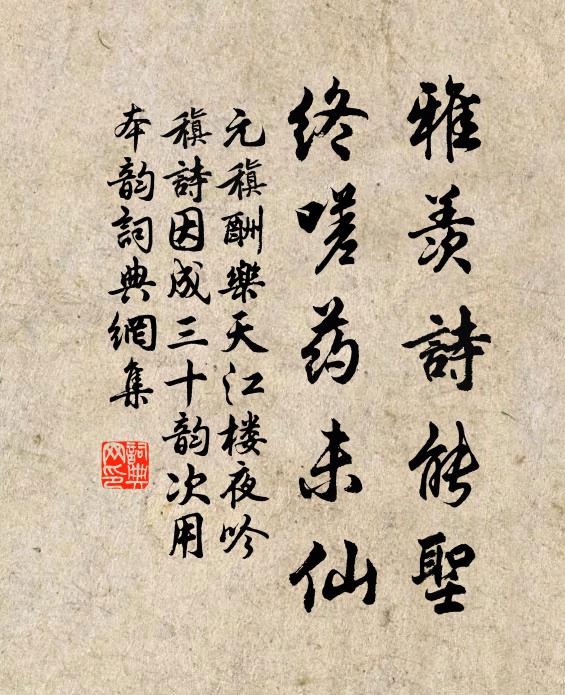 雅羨詩能聖
終嗟药未仙
元稹酬樂天江楼夜吟
稹詩因成三十韵次用
本韵詞典網集
詞典网印